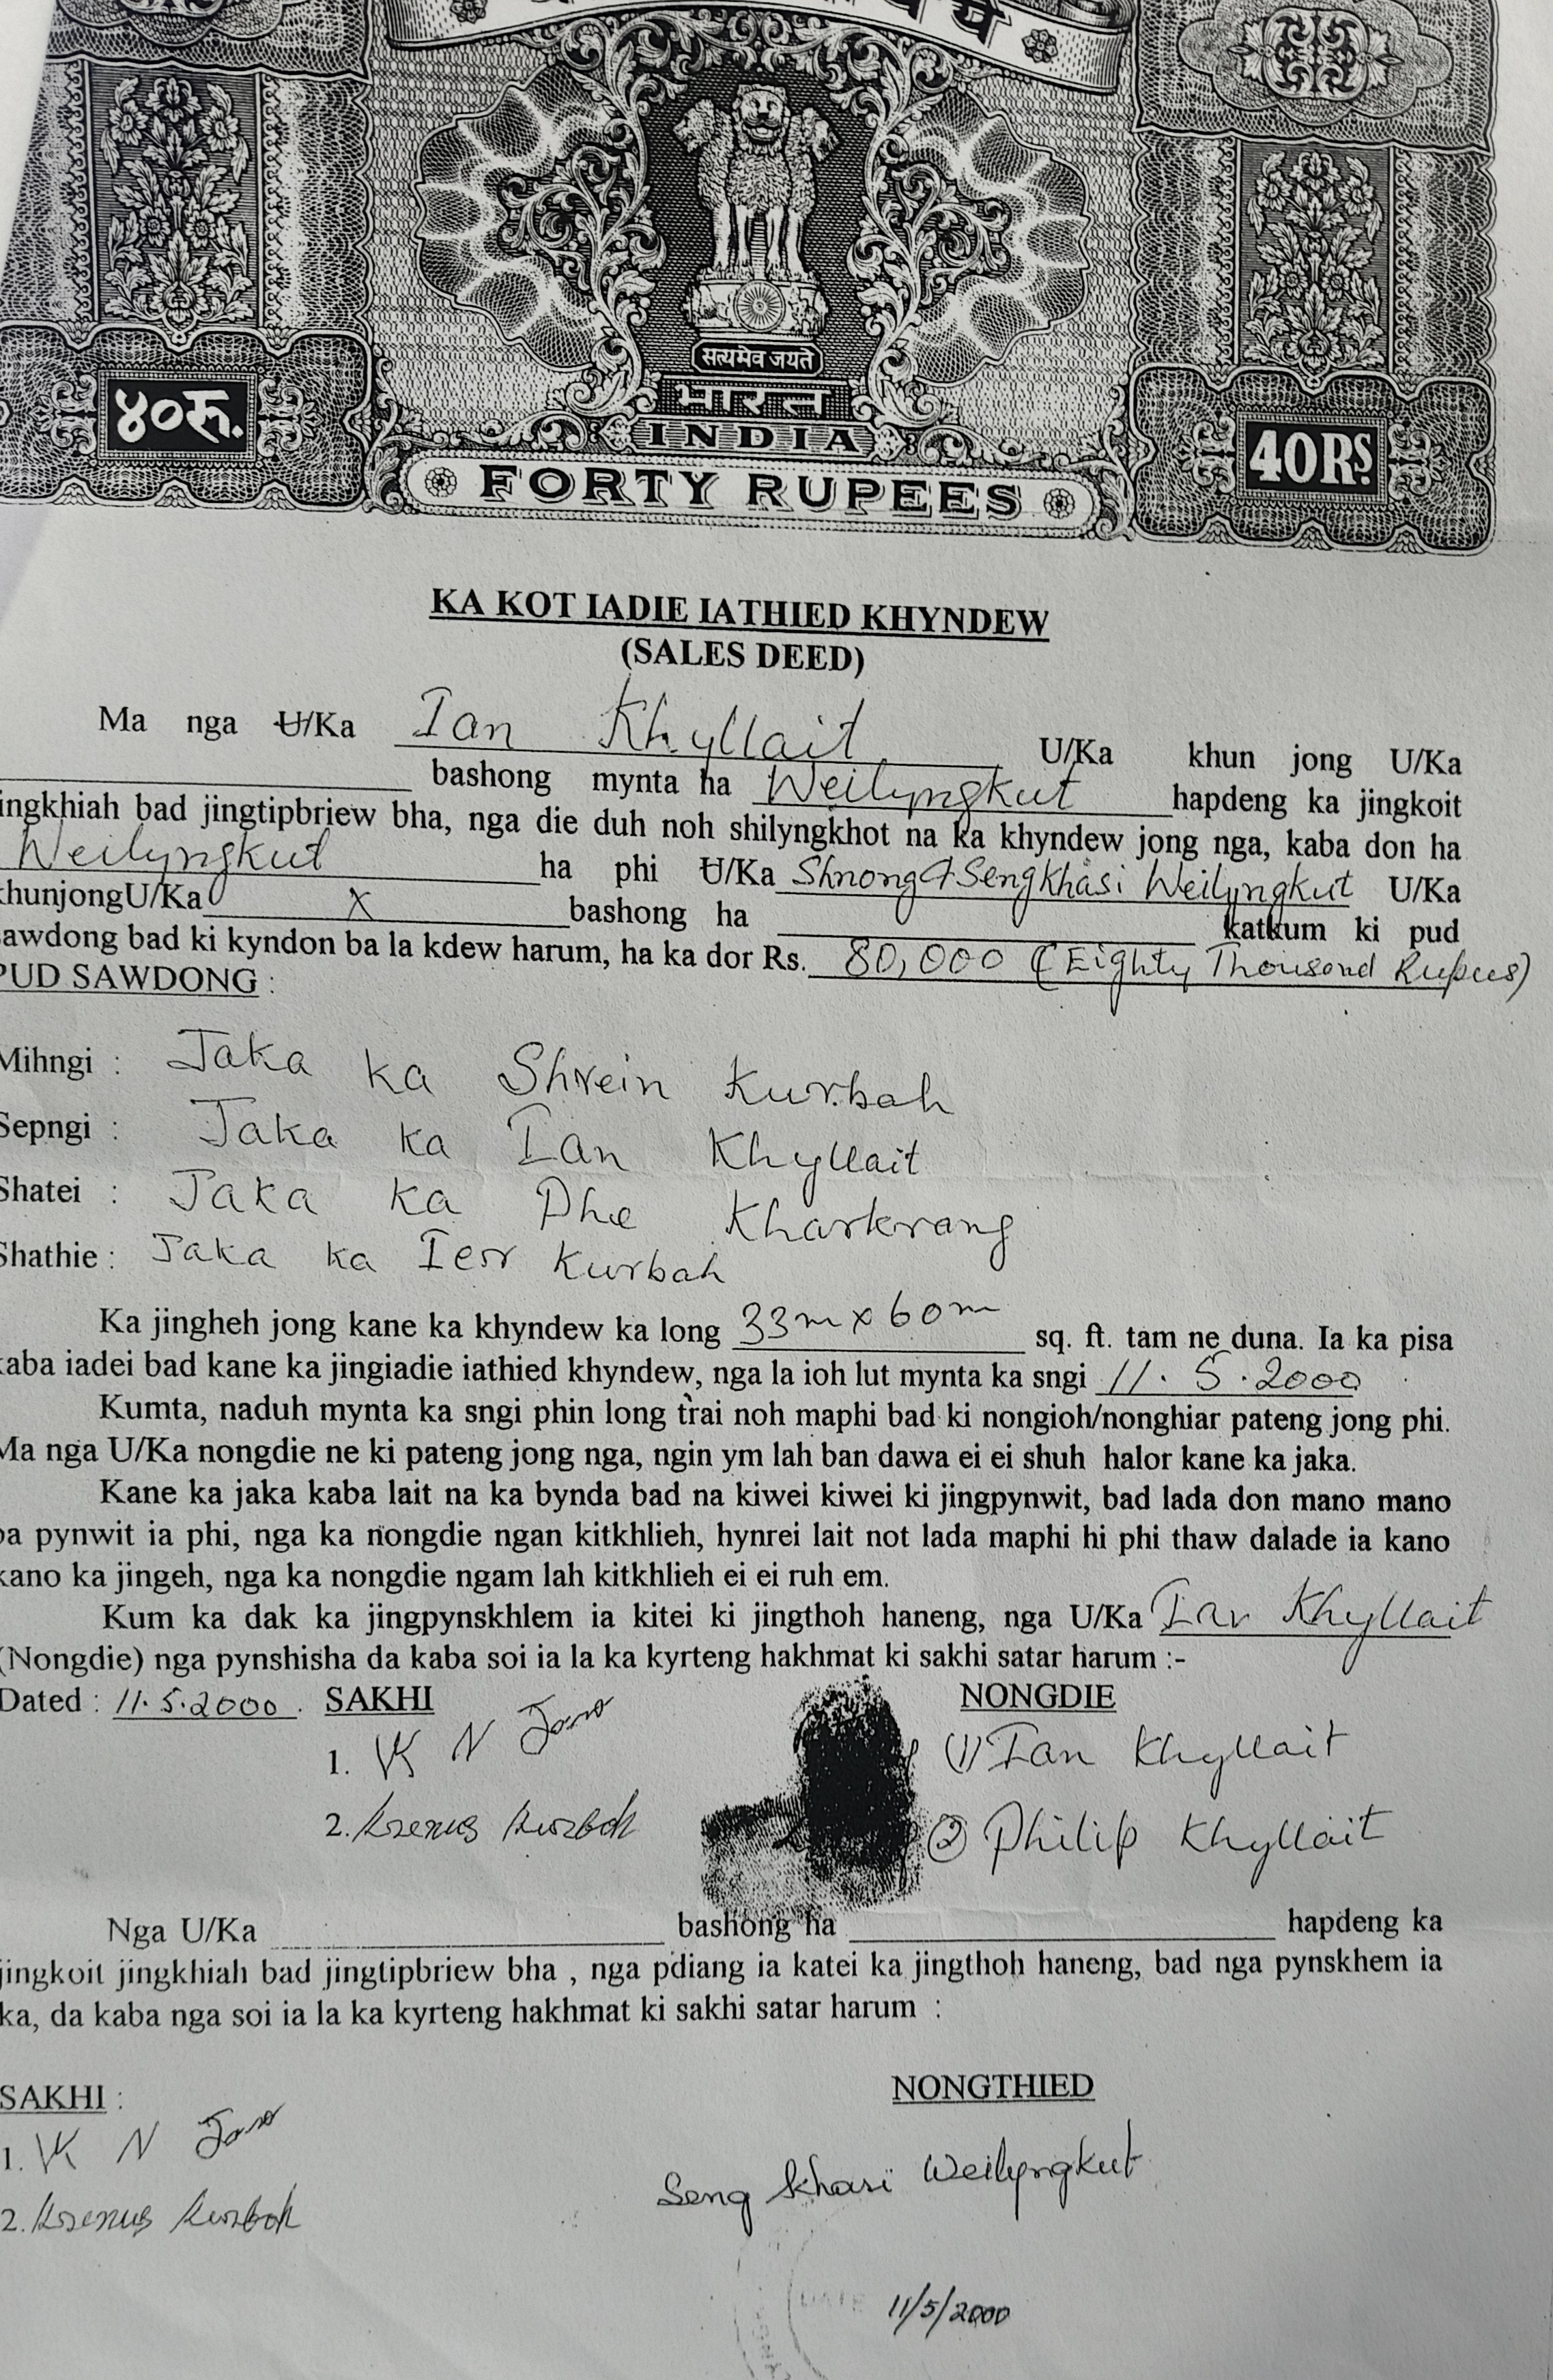 सत्यमेव जयते
भारत
INDIA
४०रु.
40RS.
FORTY RUPEES
KA KOT IADIE IATHIED KHYNDEW
(SALES DEED)
Ma nga U/Ka Ian Khyllait U/Ka khun jong U/Ka
bashong mynta ha Weilyngkut hapdeng ka jingkoit
ingkhiah bad jingtipbriew bha, nga die duh noh shilyngkhot na ka khyndew jong nga, kaba don ha
Weilyngkut ha phi U/Ka Shnong & Sengkhasi Weilyngkut U/Ka
khunjongU/Ka x bashong ha katkum ki pud
sawdong bad ki kyndon ba la kdew harum, ha ka dor Rs. 80,000 (Eighty Thousand Rupees)
PUD SAWDONG :
Mihngi : Jaka ka Shrein Kurbah
Sepngi : Jaka ka Ian Khyllait
Shatei : Jaka ka Phe Kharkrang
Shathie : Jaka ka Ier Kurbah
Ka jingheh jong kane ka khyndew ka long 33m x 60m sq. ft. tam ne duna. Ia ka pisa
kaba iadei bad kane ka jingiadie iathied khyndew, nga la ioh lut mynta ka sngi 11.5.2000
Kumta, naduh mynta ka sngi phin long trai noh maphi bad ki nongioh/nonghiar pateng jong phi.
Ma nga U/Ka nongdie ne ki pateng jong nga, ngin ym lah ban dawa ei ei shuh halor kane ka jaka.
Kane ka jaka kaba lait na ka bynda bad na kiwei kiwei ki jingpynwit, bad lada don mano mano
ba pynwit ia phi, nga ka nongdie ngan kitkhlieh, hynrei lait not lada maphi hi phi thaw dalade ia kano
kano ka jingeh, nga ka nongdie ngam lah kitkhlieh ei ei ruh em.
Kum ka dak ka jingpynskhlem ia kitei ki jingthoh haneng, nga U/Ka Ian Khyllait
(Nongdie) nga pynshisha da kaba soi ia la ka kyrteng hakhmat ki sakhi satar harum :-
Dated : 11.5.2000. SAKHI NONGDIE
1. K N (1) Ian Khyllait
2. Kurbah (2) Philip Khyllait
Nga U/Ka bashong ha hapdeng ka
jingkoit jingkhiah bad jingtipbriew bha , nga pdiang ia katei ka jingthoh haneng, bad nga pynskhem ia
ka, da kaba nga soi ia la ka kyrteng hakhmat ki sakhi satar harum :
SAKHI : NONGTHIED
1. K N
2. Kurbah
Seng Khasi Weilyngkut
11/5/2000